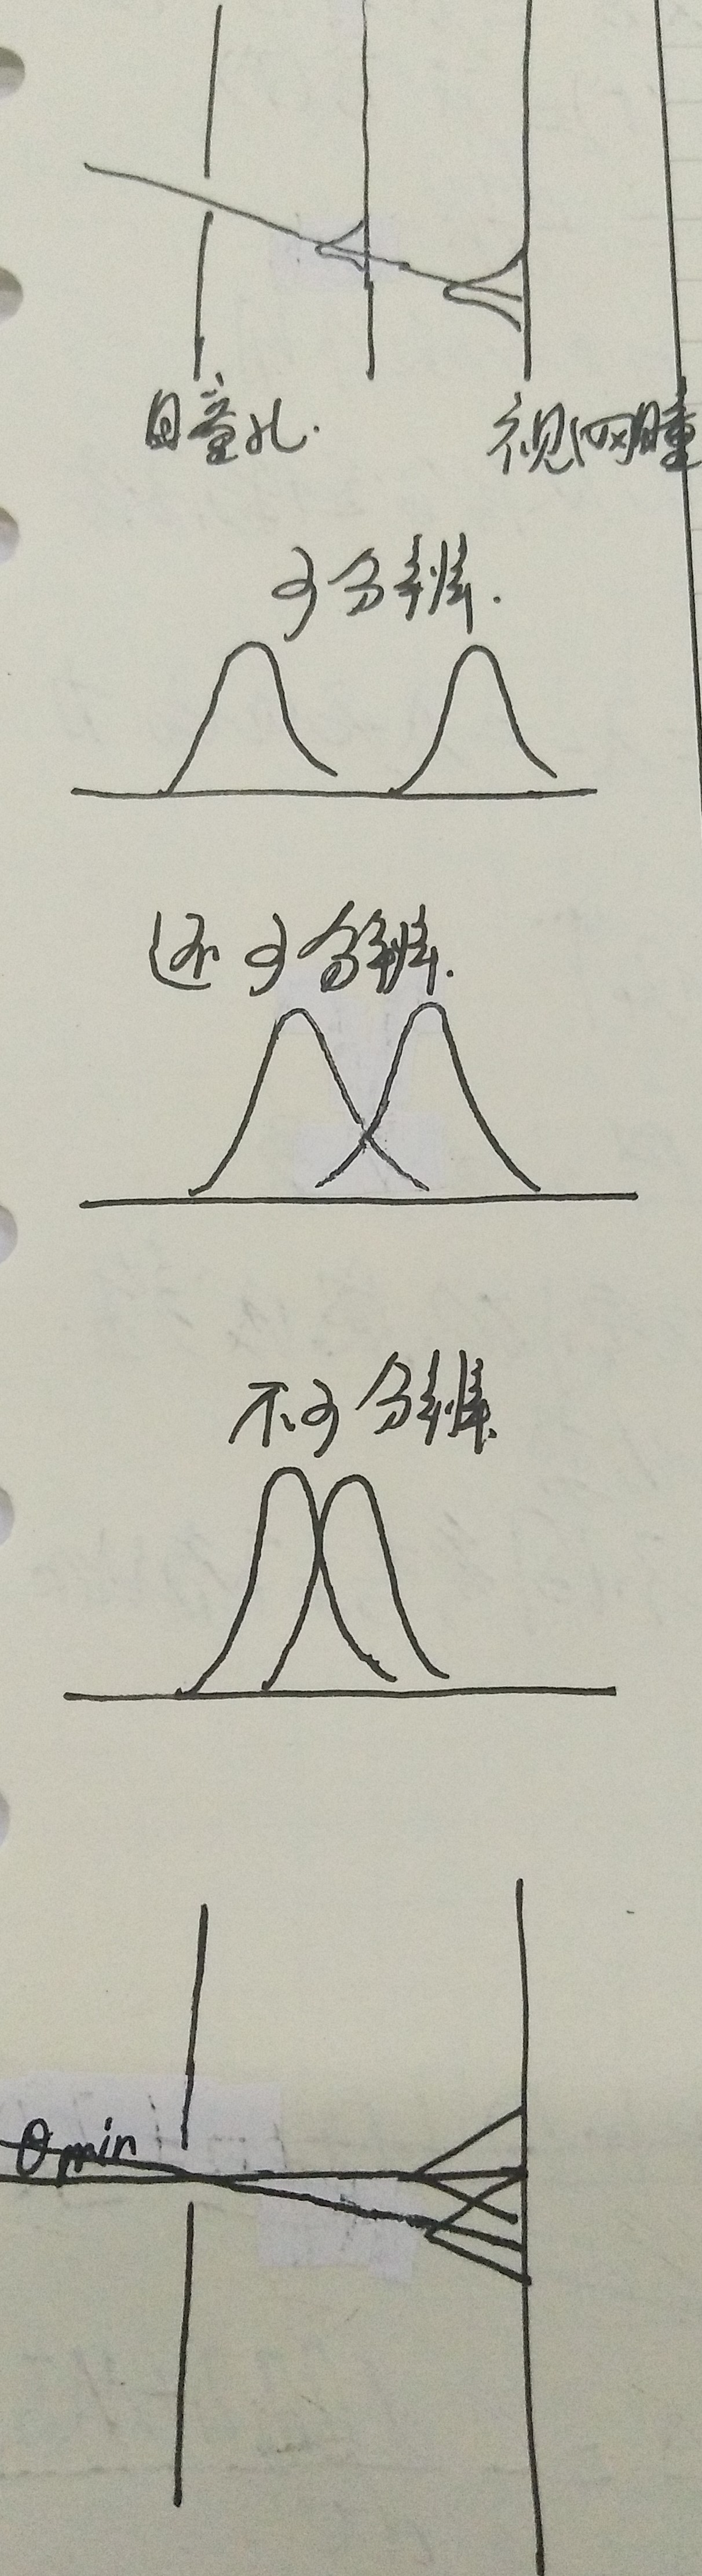 瞳孔. 视网膜
可分辨.
还可分辨.
不可分辨.
θmin